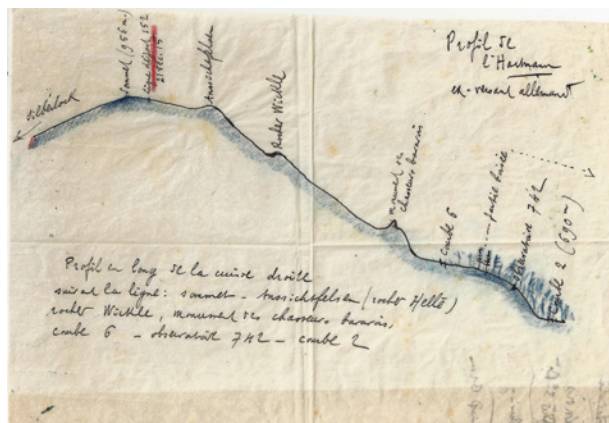 Profil de
l'Hartmann
ex-versant allemand
Silberloch
Sommet (956m)
ligne départ 152
21 Déc. 15
Aussichtfelsen
Rocher Wickle
monument des
chasseurs bavarois
combe 6
partie boisée
observatoire 742
combe 2 (690m)
Profil en long de la cuisse droite
suivant la ligne: sommet - Aussichtfelsen (rocher Hellé)
rocher Wickle, monument des chasseurs bavarois,
combe 6 - observatoire 742 - combe 2